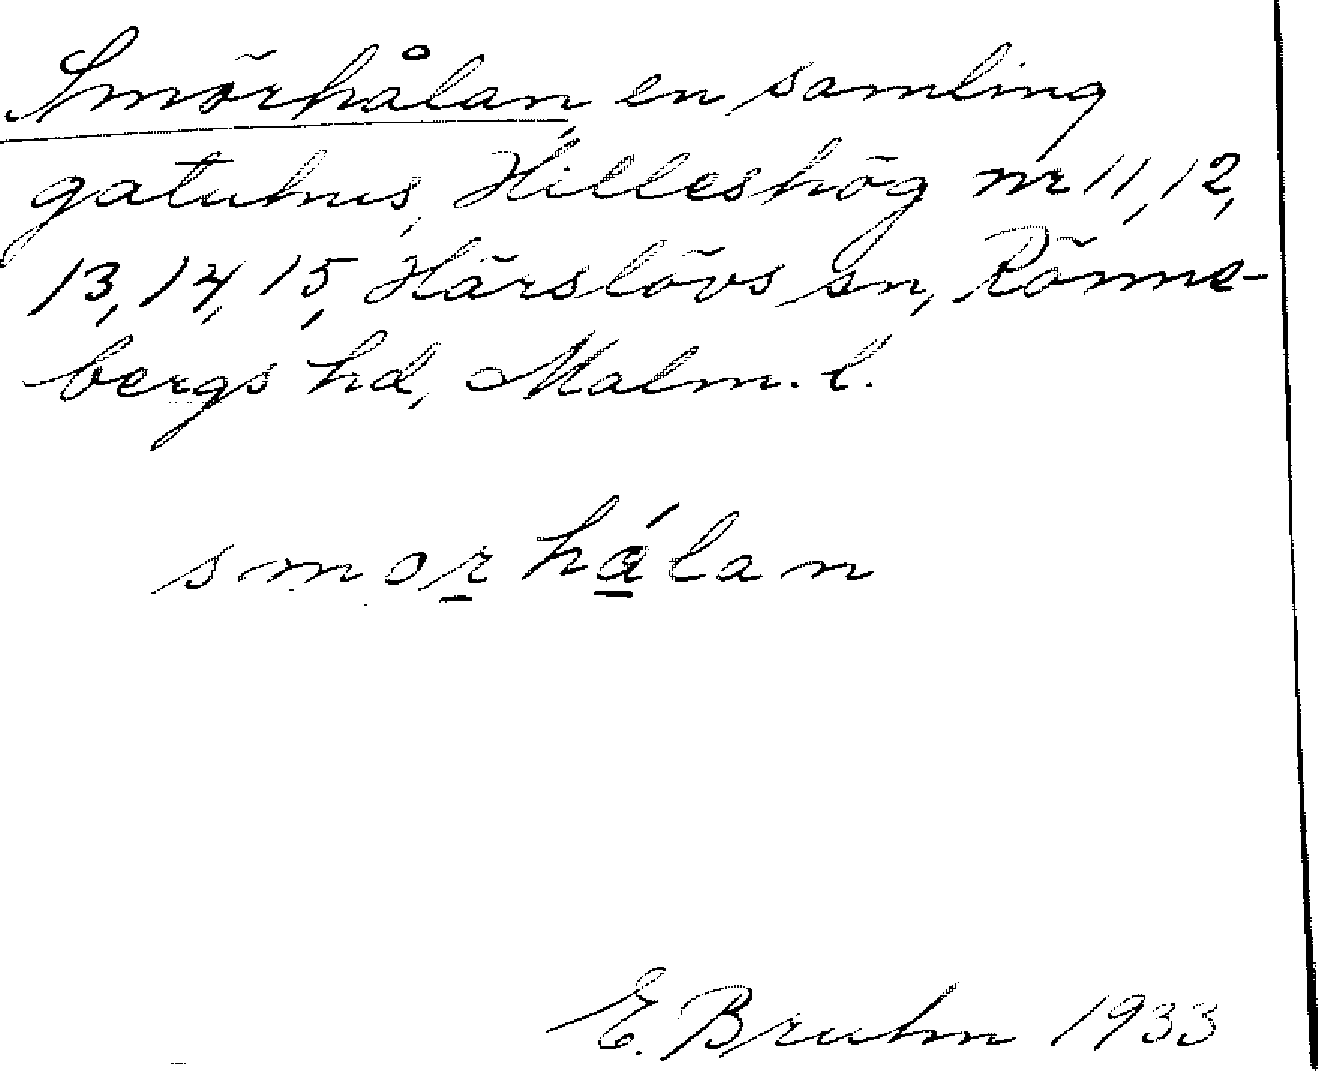 Smörhålan en samling
gatuhus, Hilleshög nr 11, 12,
13, 14, 15, Härslövs sn, Rönne-
bergs hd, Malm. l.
smorhálan
E. Bruhn 1933